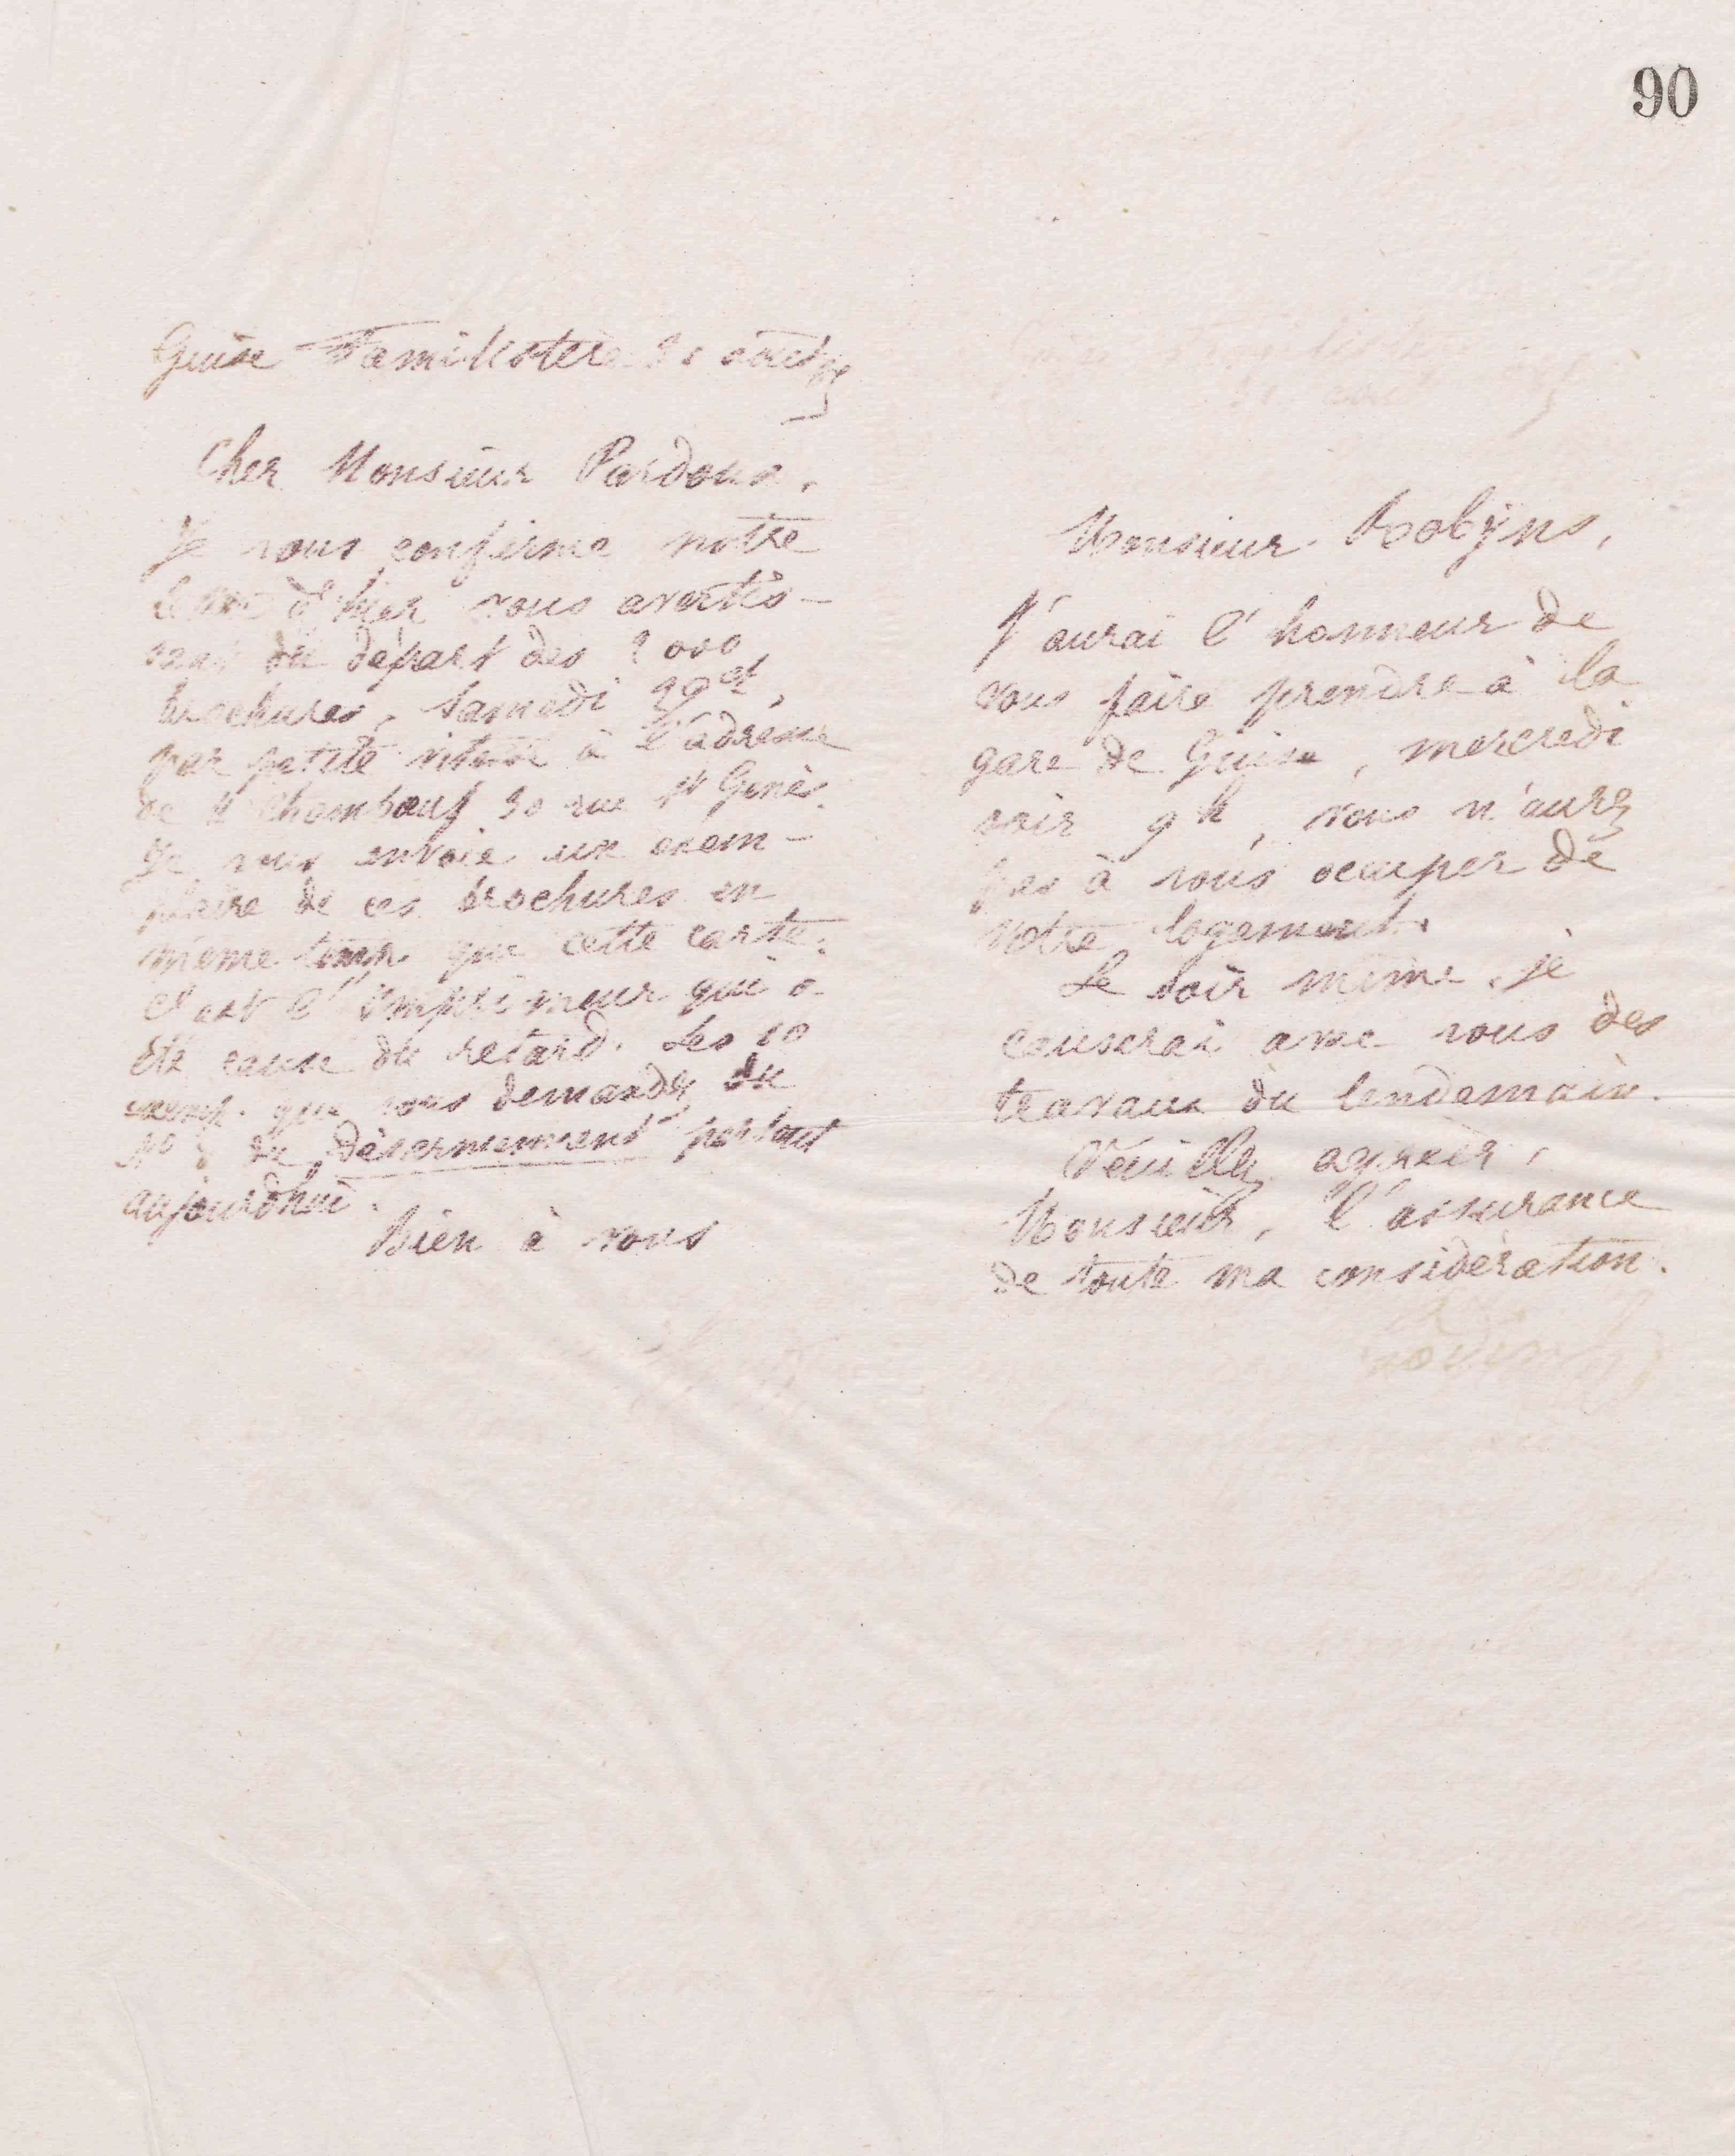 90
Guise Familistère 31 août
Cher Monsieur Pardoux,
Je vous confirme notre
lettre d'hier vous avertis-
sant du départ des 2000
brochures, samedi 29 ct,
par petite vitesse à l'adresse
de M Chambœuf 30 rue St Genès.
Je vous envoie un exem-
plaire de ces brochures en
même temps que cette carte.
C'est l'imprimeur qui a
été cause du retard. Les 10
exemp. que vous demandez du
No du Désarmement partent
aujourd'hui.
Bien à vous
Monsieur Robÿns,
J'aurai l'honneur de
vous faire prendre à la
gare de Guise, mercredi
soir 9h, vous n'aurez
pas à vous occuper de
votre logement.
Le soir même, je
causerai avec vous des
travaux du lendemain.
Veuillez agréer,
Monsieur, l'assurance
de toute ma considération.
Godin